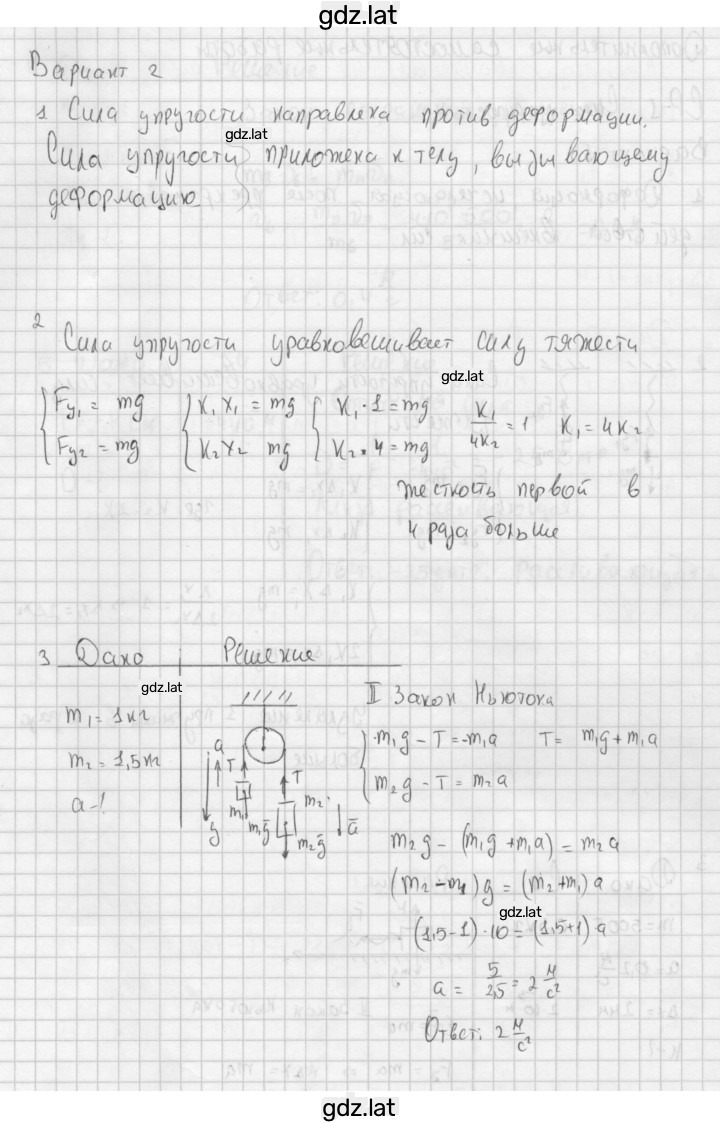 gdz.lat
Вариант 2
1 Сила упругости направлена против деформации.
gdz.lat
Сила упругости приложена к телу, вызывающему
деформацию.
2
Сила упругости уравновешивает силу тяжести
gdz.lat
{ Fу₁ = mg { K₁ x₁ = mg { K₁ · 1 = mg K₁/4K₂ = 1 K₁ = 4K₂
Fу₂ = mg K₂ x₂ mg K₂ · 4 = mg
жесткость первой в
4 раза больше
3 Дано Решение
gdz.lat
m₁ = 1 кг
m₂ = 1,5 кг
a - !
a
T
T
m₁
m₁g̅
m₂
m₂g̅
g
a̅
II Закон Ньютона
{ m₁g - T = -m₁a T = m₁g + m₁a
m₂g - T = m₂a
m₂g - (m₁g + m₁a) = m₂a
(m₂ - m₁)g = (m₂ + m₁)a
gdz.lat
(1,5 - 1) · 10 = (1,5 + 1) · a
a = 5/2,5 = 2 м/с²
Ответ: 2 м/с²
gdz.lat